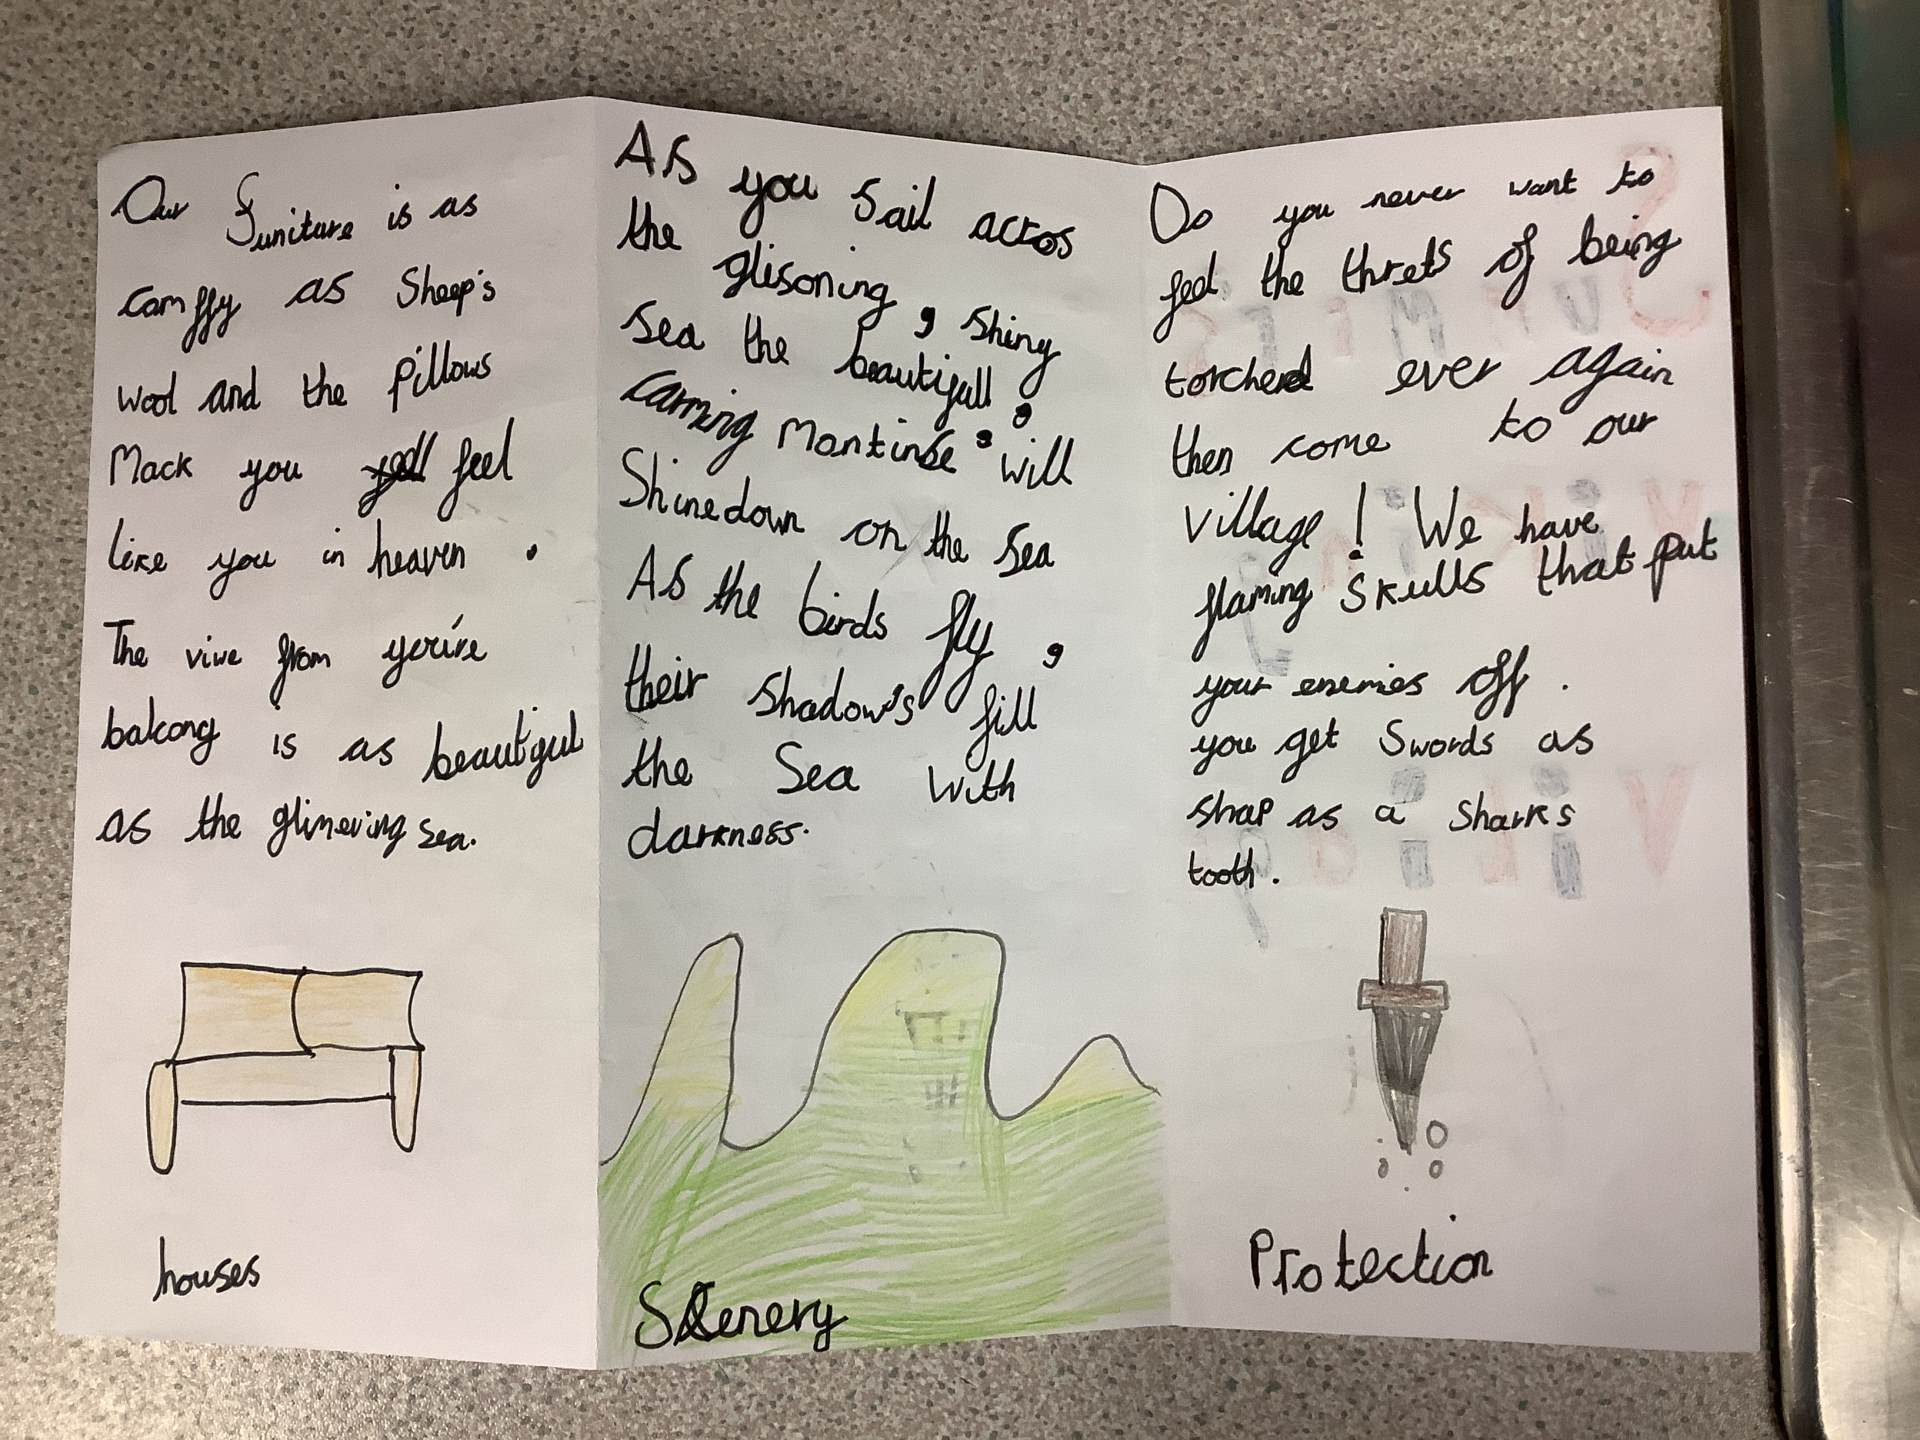 Our funiture is as
comffy as Sheep's
wool and the pillows
Mack you feel
like you in heaven .
The viwe from you're
balcony is as beautiful
as the glimering sea.
houses
As you Sail acros
the glisoning , shiny
sea the beautifull ,
carming Montinse , will
Shinedown on the sea
As the birds fly ,
their shadow's fill
the Sea with
darkness.
Scenery
Do you never want to
feel the threts of being
torcherd ever again
then come to our
village ! We have
flaming skulls that put
your enemies off .
you get Swords as
shap as a sharks
tooth .
Protection